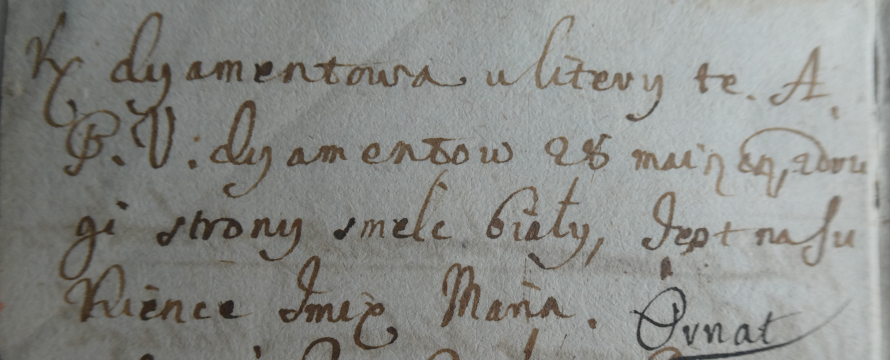 dyamentowa u litery te. A.
B. V: dyamentow 28 maią cą, z dru
gi strony smelc biały, Jest na su
kience Imię Maria. Ornat